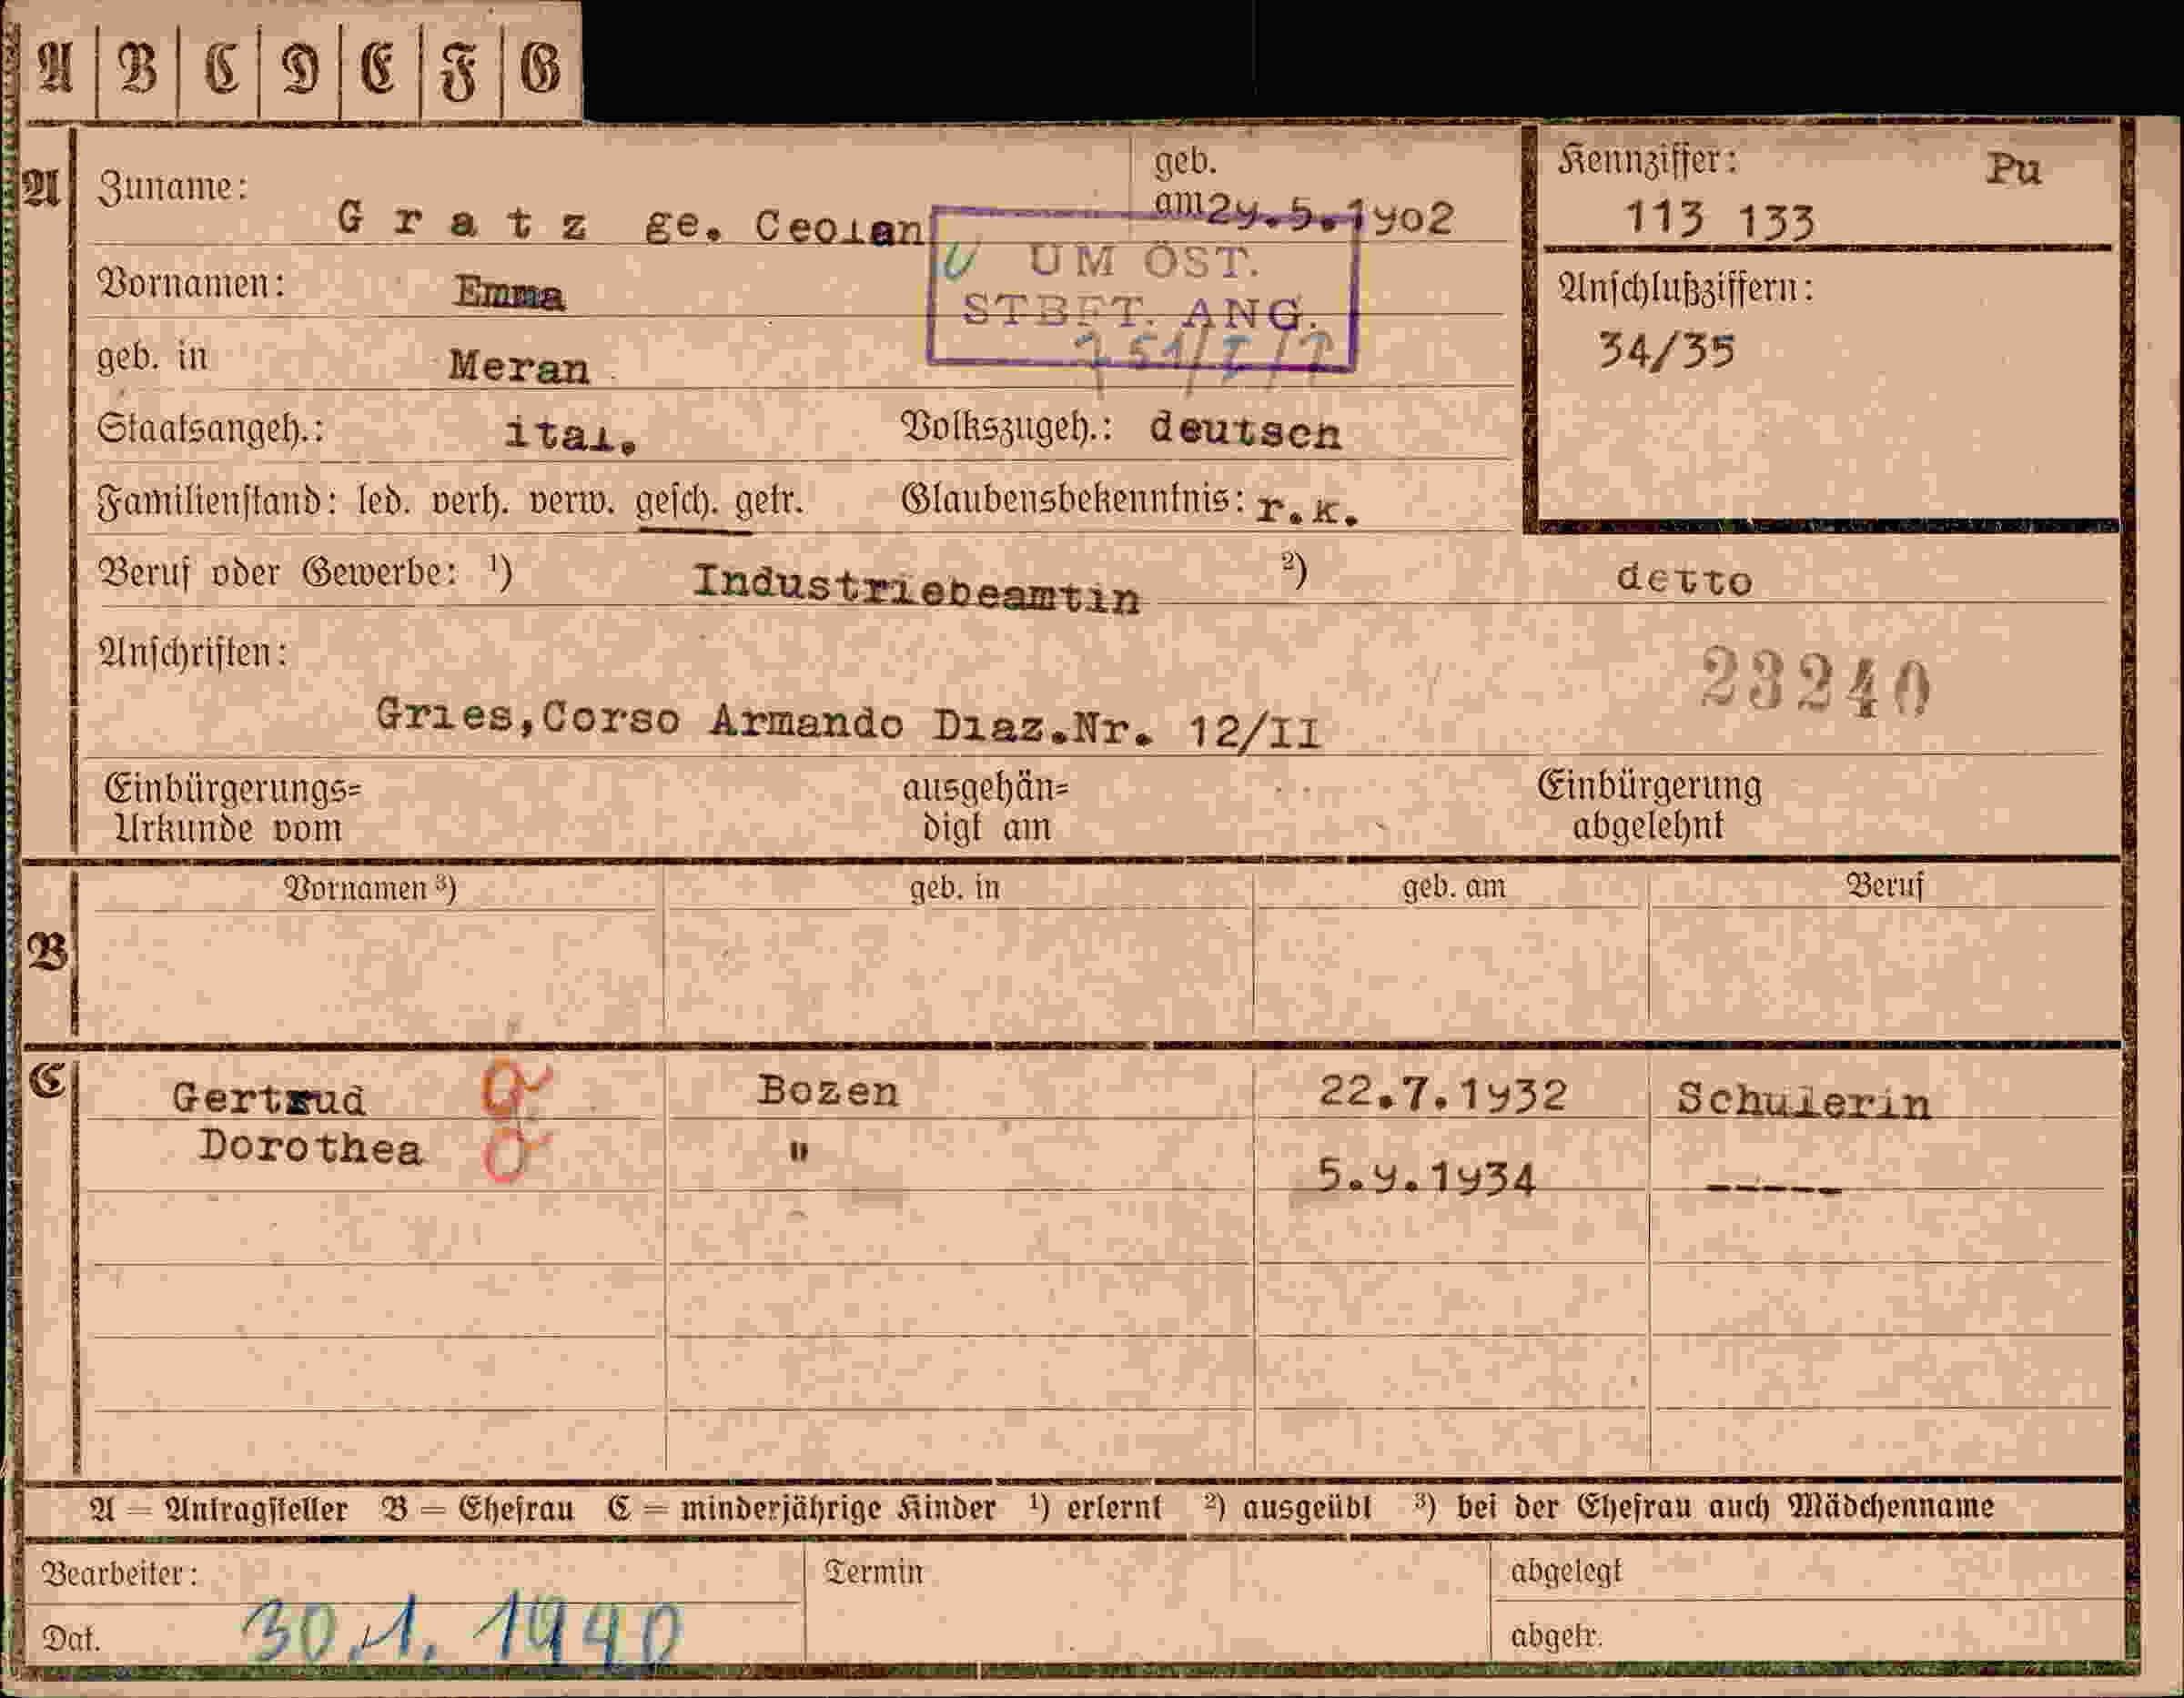 A B C D E F G
A Zuname: Gratz ge. Ceolan geb. am 29.5.1902
Kennziffer: Pu
113 133
UM ÖST.
STBFT. ANG.
Vornamen: Emma
Anschlußziffern:
34/35
geb. in Meran
Staatsangeh.: ital. Volkszugeh.: deutsch
Familienstand: led. verh. verw. gesch. getr. Glaubensbekenntnis: r.k.
Beruf oder Gewerbe: ¹) Industriebeamtin ²) detto
Anschriften:
23240
Gries,Corso Armando Diaz.Nr. 12/II
Einbürgerungs= ausgehän= Einbürgerung
Urkunde vom digt am abgelehnt
Vornamen ³) geb. in geb. am Beruf
B
C Gertrud Bozen 22.7.1932 Schulerin
Dorothea " 5.9.1934 -----
A = Antragsteller B = Ehefrau C = minderjährige Kinder ¹) erlernt ²) ausgeübt ³) bei der Ehefrau auch Mädchenname
Bearbeiter: Termin abgelegt
Dat. 30.1.1940 abgetr.